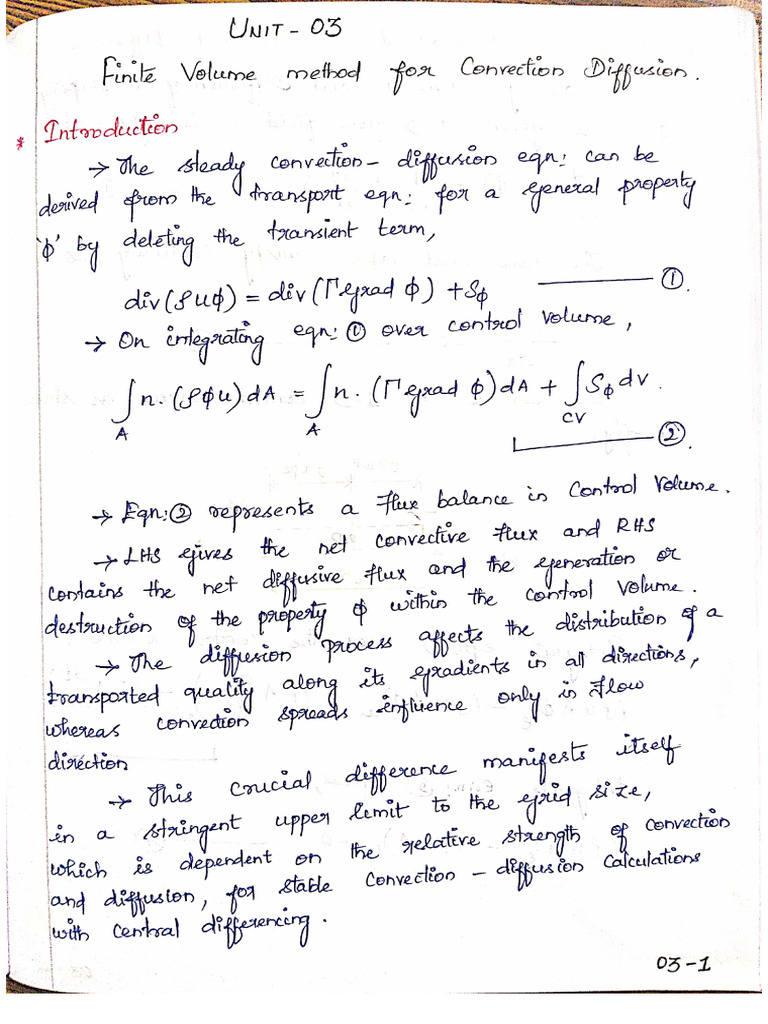 UNIT - 03
Finite Volume method for Convection Diffusion.
* Introduction
→ The steady convection - diffusion eqn: can be
derived from the transport eqn: for a general property
'ϕ' by deleting the transient term,
div(ρuϕ) = div(Γ grad ϕ) + Sϕ ——— ①.
→ On integrating eqn: ① over control volume,
∫_A n. (ρϕu) dA = ∫_A n. (Γ grad ϕ) dA + ∫_CV Sϕ dV.
——— ②.
→ Eqn: ② represents a flux balance in Control Volume.
→ LHS gives the net convective flux and RHS
contains the net diffusive flux and the generation or
destruction of the property ϕ within the control volume.
→ The diffusion process affects the distribution of a
transported quality along its gradients in all directions,
whereas convection spreads influence only in flow
direction
→ This crucial difference manifests itself
in a stringent upper limit to the grid size,
which is dependent on the relative strength of convection
and diffusion, for stable convection - diffusion calculations
with central differencing.
03-1